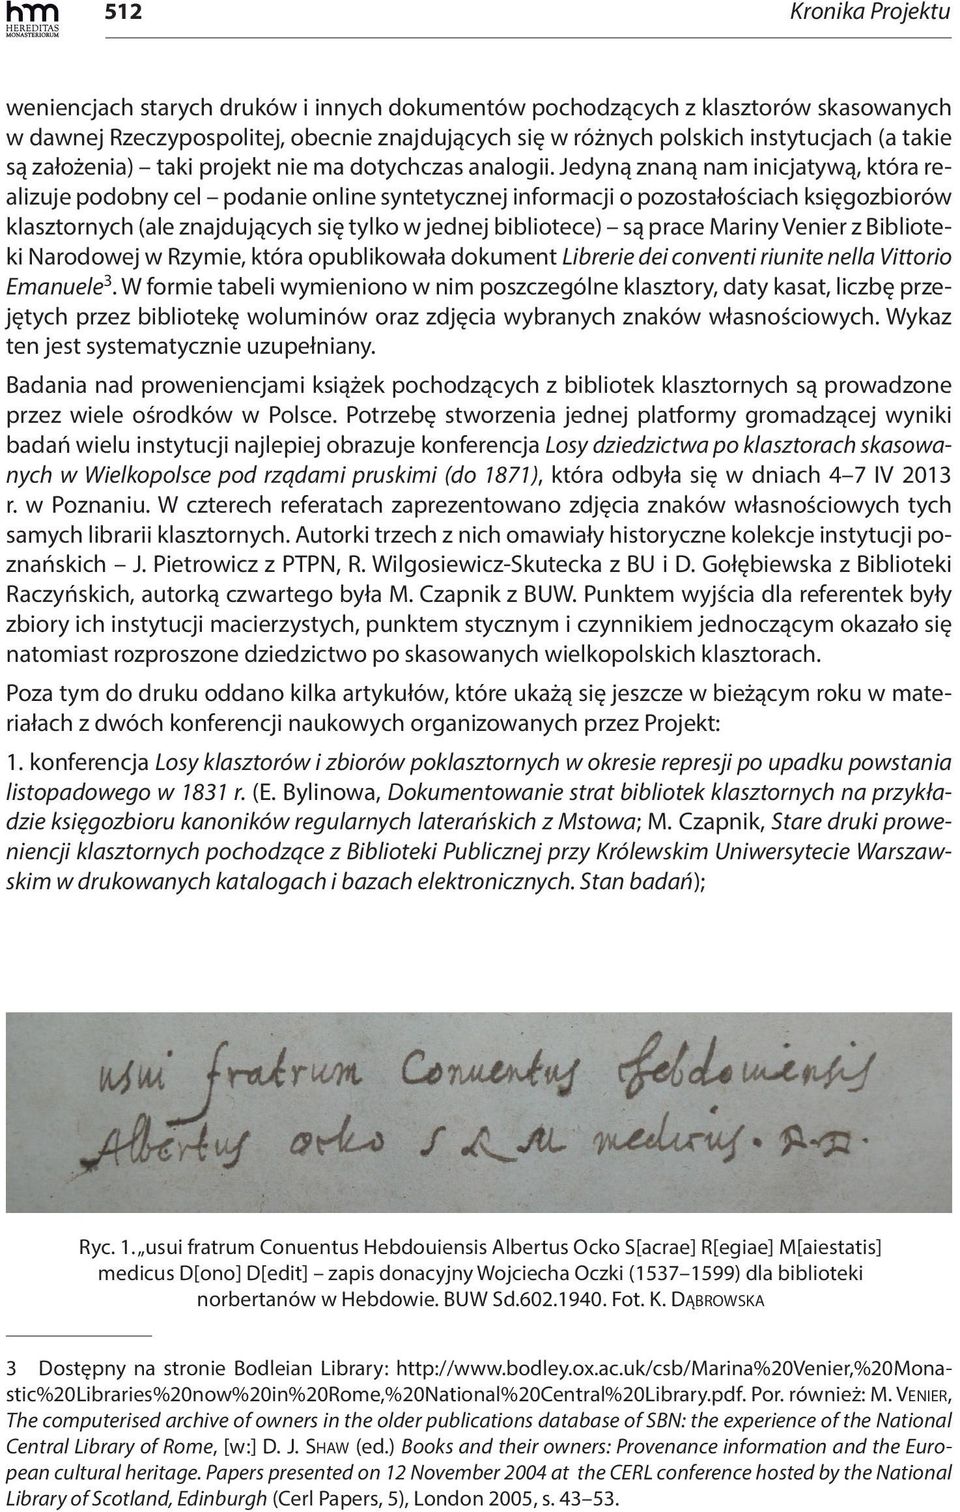 hm
HEREDITAS
MONASTERIORUM
512
Kronika Projektu
weniencjach starych druków i innych dokumentów pochodzących z klasztorów skasowanych
w dawnej Rzeczypospolitej, obecnie znajdujących się w różnych polskich instytucjach (a takie
są założenia) – taki projekt nie ma dotychczas analogii. Jedyną znaną nam inicjatywą, która re-
alizuje podobny cel – podanie online syntetycznej informacji o pozostałościach księgozbiorów
klasztornych (ale znajdujących się tylko w jednej bibliotece) – są prace Mariny Venier z Bibliote-
ki Narodowej w Rzymie, która opublikowała dokument Librerie dei conventi riunite nella Vittorio
Emanuele3. W formie tabeli wymieniono w nim poszczególne klasztory, daty kasat, liczbę prze-
jętych przez bibliotekę woluminów oraz zdjęcia wybranych znaków własnościowych. Wykaz
ten jest systematycznie uzupełniany.
Badania nad proweniencjami książek pochodzących z bibliotek klasztornych są prowadzone
przez wiele ośrodków w Polsce. Potrzebę stworzenia jednej platformy gromadzącej wyniki
badań wielu instytucji najlepiej obrazuje konferencja Losy dziedzictwa po klasztorach skasowa-
nych w Wielkopolsce pod rządami pruskimi (do 1871), która odbyła się w dniach 4–7 IV 2013
r. w Poznaniu. W czterech referatach zaprezentowano zdjęcia znaków własnościowych tych
samych librarii klasztornych. Autorki trzech z nich omawiały historyczne kolekcje instytucji po-
znańskich – J. Pietrowicz z PTPN, R. Wilgosiewicz-Skutecka z BU i D. Gołębiewska z Biblioteki
Raczyńskich, autorką czwartego była M. Czapnik z BUW. Punktem wyjścia dla referentek były
zbiory ich instytucji macierzystych, punktem stycznym i czynnikiem jednoczącym okazało się
natomiast rozproszone dziedzictwo po skasowanych wielkopolskich klasztorach.
Poza tym do druku oddano kilka artykułów, które ukażą się jeszcze w bieżącym roku w mate-
riałach z dwóch konferencji naukowych organizowanych przez Projekt:
1. konferencja Losy klasztorów i zbiorów poklasztornych w okresie represji po upadku powstania
listopadowego w 1831 r. (E. Bylinowa, Dokumentowanie strat bibliotek klasztornych na przykła-
dzie księgozbioru kanoników regularnych laterańskich z Mstowa; M. Czapnik, Stare druki prowe-
niencji klasztornych pochodzące z Biblioteki Publicznej przy Królewskim Uniwersytecie Warszaw-
skim w drukowanych katalogach i bazach elektronicznych. Stan badań);
usui fratrum Conuentus Hebdouiensis
Albertus ocko S R M medicus. D. D.
Ryc. 1. „usui fratrum Conuentus Hebdouiensis Albertus Ocko S[acrae] R[egiae] M[aiestatis]
medicus D[ono] D[edit] – zapis donacyjny Wojciecha Oczki (1537–1599) dla biblioteki
norbertanów w Hebdowie. BUW Sd.602.1940. Fot. K. DĄBROWSKA
3 Dostępny na stronie Bodleian Library: http://www.bodley.ox.ac.uk/csb/Marina%20Venier,%20Mona-
stic%20Libraries%20now%20in%20Rome,%20National%20Central%20Library.pdf. Por. również: M. VENIER,
The computerised archive of owners in the older publications database of SBN: the experience of the National
Central Library of Rome, [w:] D. J. SHAW (ed.) Books and their owners: Provenance information and the Euro-
pean cultural heritage. Papers presented on 12 November 2004 at the CERL conference hosted by the National
Library of Scotland, Edinburgh (Cerl Papers, 5), London 2005, s. 43–53.